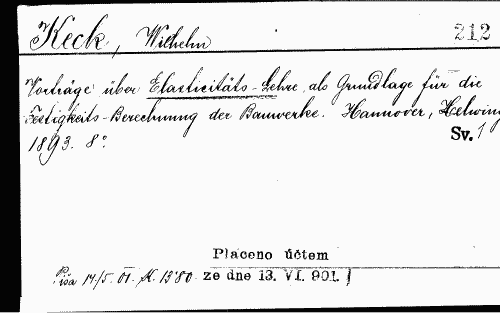 Keck, Wilhelm 212
Vorträge über Elasticitäts-Lehre als Grundlage für die
Festigkeits-Berechnung der Bauwerke. Hannover, Helwing
1893. 8°. Sv. 1
Placeno účtem
Píša 14/5. 01. K. 13·80 ze dne 13. VI. 901.